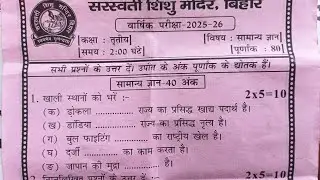 सरस्वती शिशु मंदिर, बिहार
वार्षिक परीक्षा-2025-26
कक्षा : तृतीय विषय : सामान्य ज्ञान
समय : 2:00 घंटे पूर्णांक : 80
सभी प्रश्नों के उत्तर दें। उपांत के अंक पूर्णांक के द्योतक हैं।
सामान्य ज्ञान-40 अंक
1. खाली स्थानों को भरें : 2x5=10
(क) ढ़ोकला .......... राज्य का प्रसिद्ध खाद्य पदार्थ है।
(ख) डांडिया .......... राज्य का प्रसिद्ध नृत्य है।
(ग) बुल फाइटिंग .......... का राष्ट्रीय खेल है।
(घ) दर्जी .......... का काम करता है।
(ङ) जापान की मुद्रा .......... है।
2x5=10